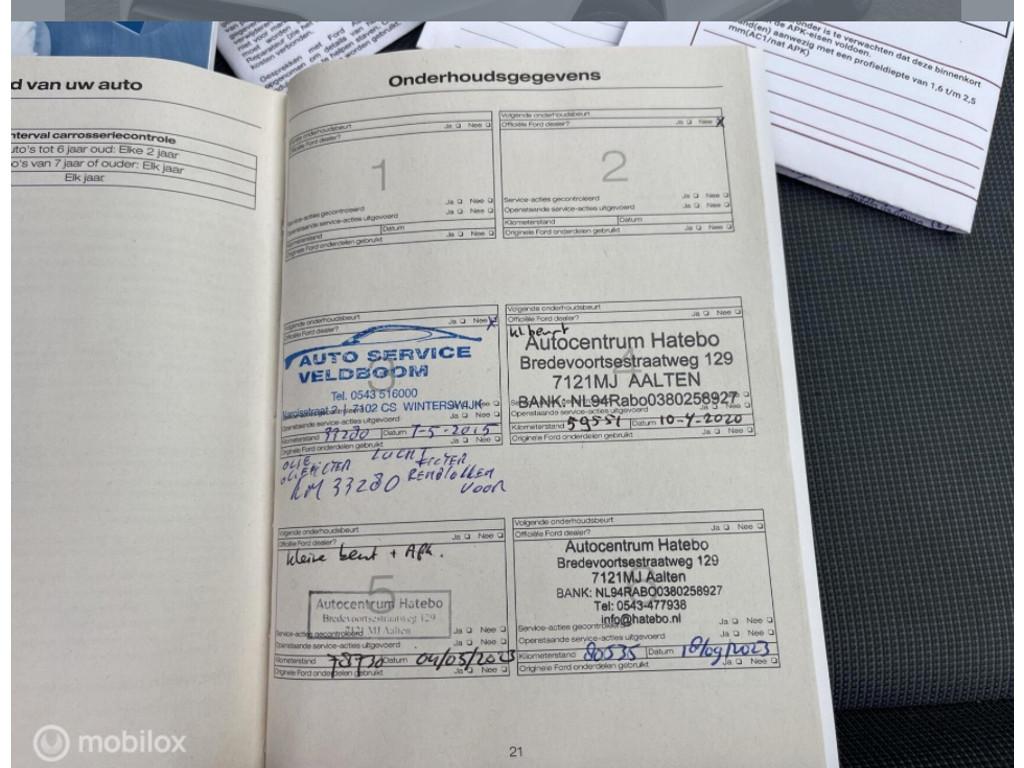 d van uw auto
nterval carrosseriecontrole
uto's tot 6 jaar oud: Elke 2 jaar
o's van 7 jaar of ouder: Elk jaar
Elk jaar
met Ford
om details
te helpen
worden gebruikt
kosten verbonden.
onder is te verwachten dat deze binnenkort
de APK-eisen voldoen.
aanwezig met een profieldiepte van 1,6 t/m 2,5
mm(AC1/nat APK)
Onderhoudsgegevens
onderhoudsbeurt
Officiële Ford dealer? Ja Nee
1
Service-acties gecontroleerd Ja Nee
Openstaande service-acties uitgevoerd Ja Nee
Kilometerstand Datum
Originele Ford onderdelen gebruikt Ja Nee
Volgende onderhoudsbeurt
Officiële Ford dealer? Ja Nee X
2
Service-acties gecontroleerd Ja Nee
Openstaande service-acties uitgevoerd Ja Nee
Kilometerstand Datum
Originele Ford onderdelen gebruikt Ja Nee
Volgende onderhoudsbeurt
Officiële Ford dealer? Ja Nee X
3
AUTO SERVICE
VELDBOOM
Tel. 0543 516000
Narcisstraat 2 | 7102 CS WINTERSWIJK
Openstaande service-acties uitgevoerd Ja Nee
Kilometerstand 33280 Datum 7-5-2015
Originele Ford onderdelen gebruikt Ja Nee
OLIE LUCHT
OLIEFILTER FILTER
KM 33280 REMBLOKKEN
VOOR
Volgende onderhoudsbeurt
Officiële Ford dealer? Ja Nee
kl beurt
4
Autocentrum Hatebo
Bredevoortsestraatweg 129
7121MJ AALTEN
BANK: NL94Rabo0380258927
Openstaande service-acties uitgevoerd Ja Nee
Kilometerstand 59551 Datum 10-4-2020
Originele Ford onderdelen gebruikt Ja Nee
Volgende onderhoudsbeurt
Officiële Ford dealer? Ja Nee
kleine beurt + Apk.
5
Autocentrum Hatebo
Bredevoortsestraatweg 129
7121 MJ Aalten
Service-acties gecontroleerd Ja Nee
Openstaande service-acties uitgevoerd Ja Nee
Kilometerstand 78730 Datum 04/05/2023
Originele Ford onderdelen gebruikt Ja Nee
Volgende onderhoudsbeurt
Officiële Ford dealer? Ja Nee
Autocentrum Hatebo
Bredevoortsestraatweg 129
7121MJ Aalten
BANK: NL94RABO0380258927
Tel: 0543-477938
info@hatebo.nl
Service-acties gecontroleerd Ja Nee
Openstaande service-acties uitgevoerd Ja Nee
Kilometerstand 80535 Datum 18/09/2023
Originele Ford onderdelen gebruikt Ja Nee
21
mobilox